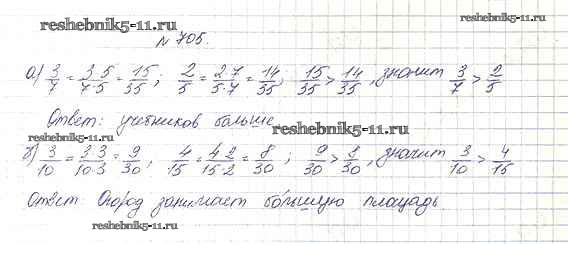 reshebnik5-11.ru
reshebnik5-11.ru
№ 705.
а) 3/7 = 3·5/7·5 = 15/35; 2/5 = 2·7/5·7 = 14/35; 15/35 > 14/35, значит 3/7 > 2/5
reshebnik5-11.ru
Ответ: учебников больше.
reshebnik5-11.ru
reshebnik5-11.ru
б) 3/10 = 3·3/10·3 = 9/30, 4/15 = 4·2/15·2 = 8/30; 9/30 > 8/30, значит 3/10 > 4/15
Ответ Огород занимает бо́льшую площадь.
reshebnik5-11.ru
reshebnik5-11.ru